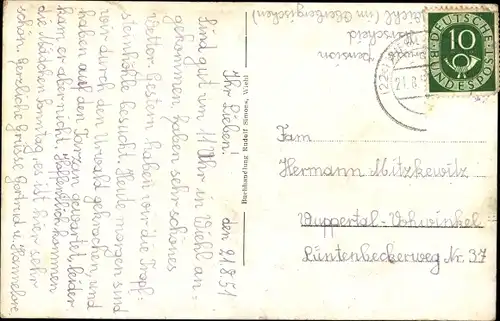 Pension
Marscheid
Wiehl (im Oberbergischen)
den 21.8.51
Ihr Lieben!
Sind gut im 11 Uhr in Wiehl an-
gekommen, haben sehr schönes
Wetter. Gestern haben wir die Tropf-
steinhöhle besucht. Heute morgen sind
wir durch den Urwald gekrochen, und
haben auf den Tarzan gewartet, leider
kam er aber nicht. Hoffentlich kommen
die Mädchen Sonntag, es ist hier sehr
schön. Herzliche Grüsse Gertrud u. Hannelore
Buchhandlung Rudolf Simons, Wiehl
DEUTSCHE
BUNDESPOST
10
(22c)
21.8.5
Fam
Hermann Mitzkewitz
Wuppertal-Vohwinkel
Lüntenbeckerweg Nr. 37